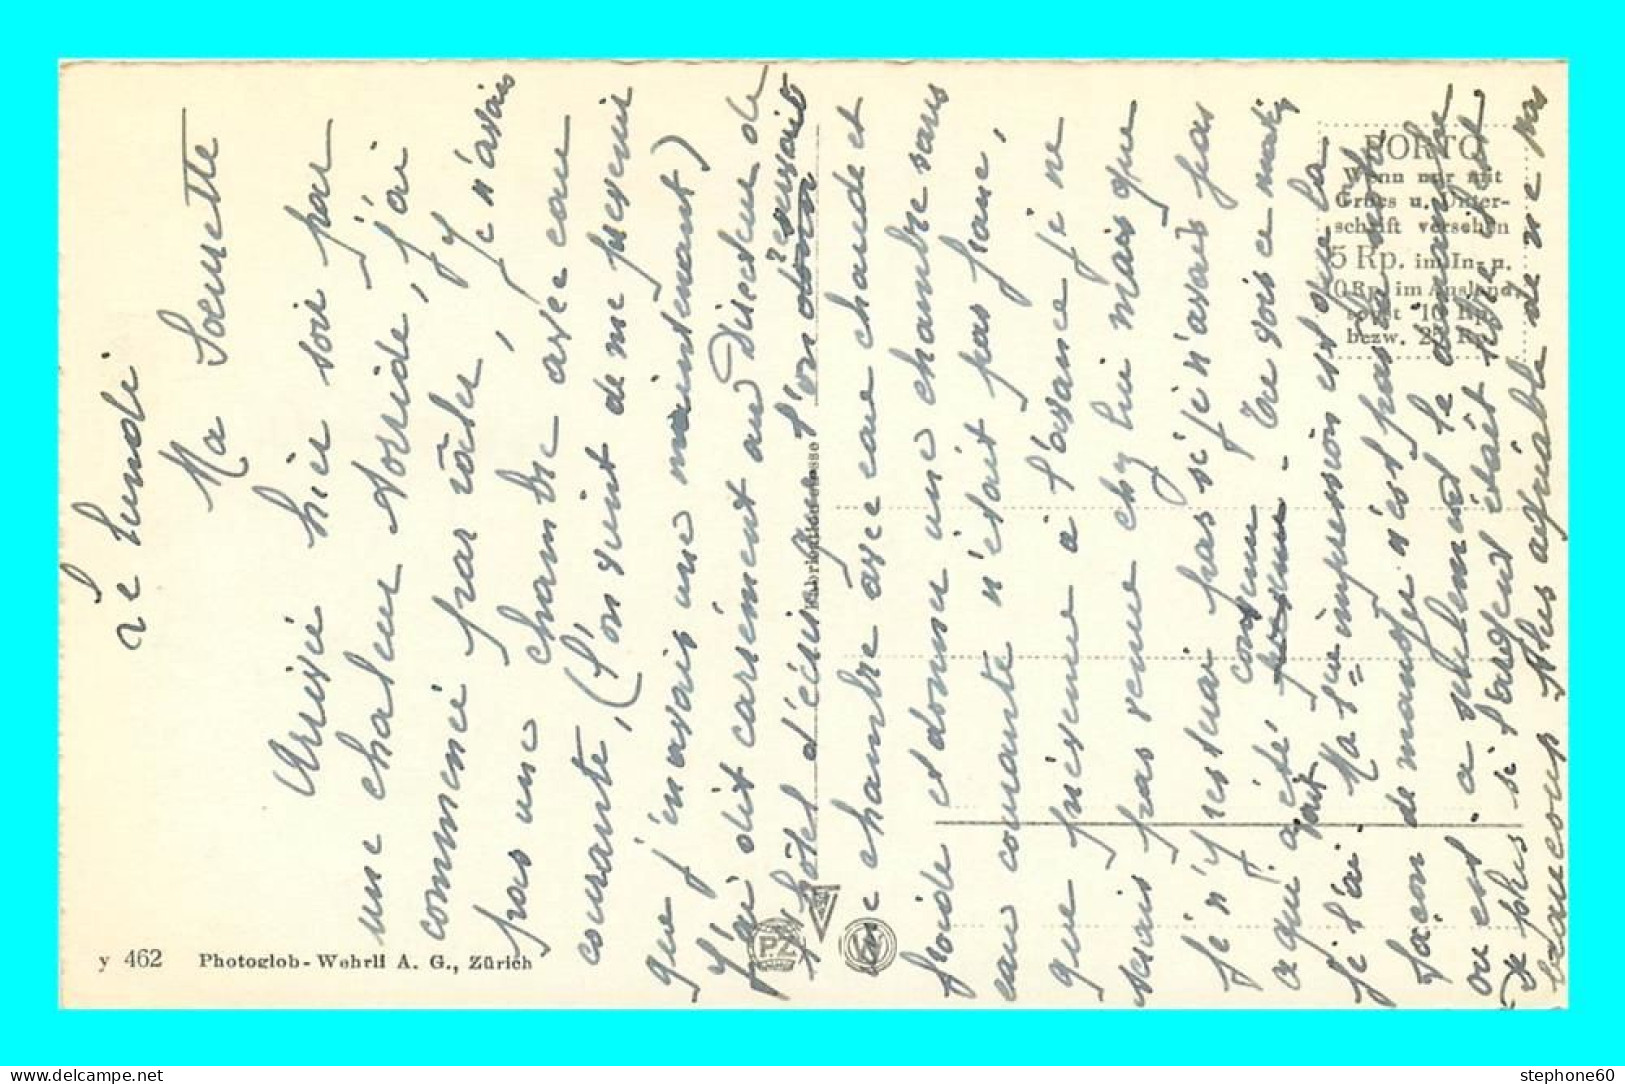 Le lundi
Ma Soeurette
Arrivée hier soir par
une chaleur torride, j'ai
commencé par râler, je n'avais
pas une chambre avec eau
courante, (l'on vient de me prévenir
que j'en avais une maintenant)
J'ai dit carrément au Directeur de
l'hôtel d'écrire
une chambre avec eau chaude et
froide et donner une chambre sans
eau courante n'était pas franc,
que prévenue à l'avance je ne
serais pas venue chez lui mais que
je n'y resterai pas si je n'avais pas
ce qui a été convenu. Tu vois ce matin
je l'ai Ma 1ère impression est que la
façon de manger n'est pas
ou est seulement le
De plus si l'argent était
beaucoup plus agréable de ne pas
PORTO
Wenn nur mit
Gruss u. Unter-
schrift versehen
5 Rp. im In- u.
10 Rp. im Ausland,
sonst 10 Rp.
bezw. 25 Rp.
PZ
W
y 462 Photoglob-Wehrli A. G., Zürich
stephone60